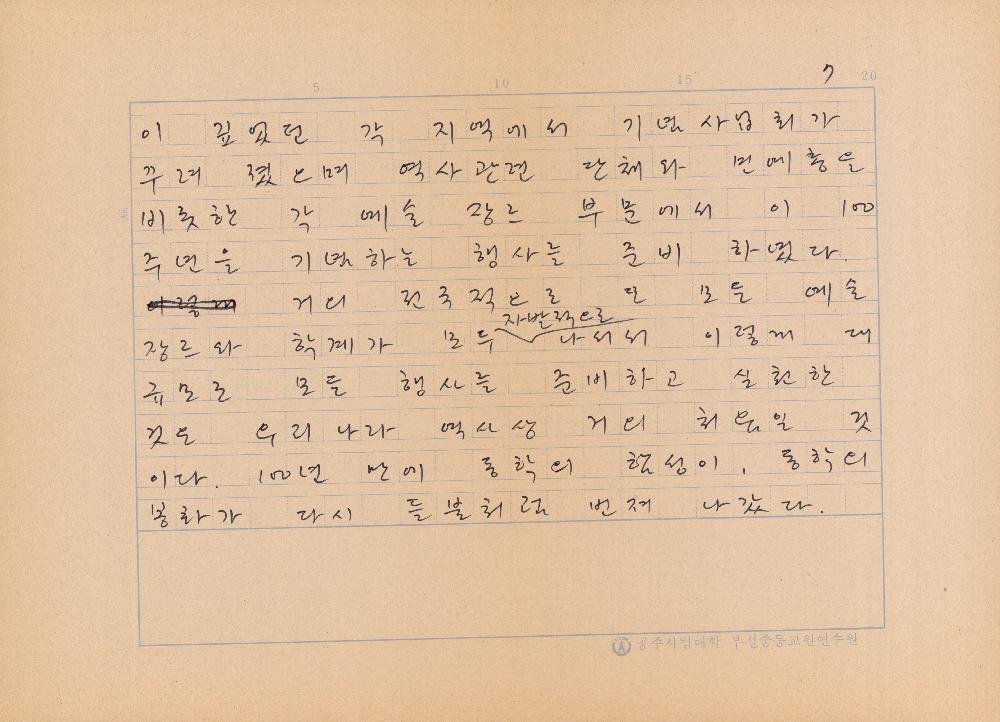 7
5 10 15 20
이 깊었던 각 지역에서 기념사업회가
꾸려 졌으며 역사관련 단체와 민예총을
비롯한 각 예술 장르 부문에서 이 100
주년을 기념하는 행사를 준비 하였다.
거의 전국적으로 또 모든 예술
자발적으로
장르와 학계가 모두 나서서 이렇게 대
규모로 모든 행사를 준비하고 실천한
것은 우리 나라 역사상 거의 처음일 것
이다. 100년 만에 동학의 함성이, 동학의
봉화가 다시 들불처럼 번져 나갔다.
공주사범대학 부설중등교원연수원